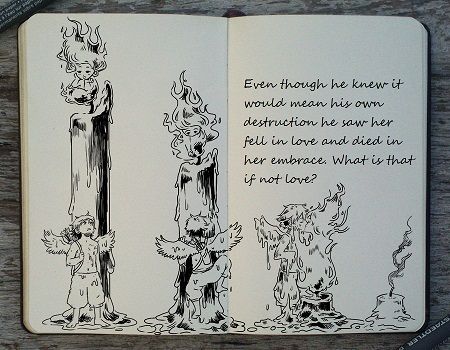 Even though he knew it
would mean his own
destruction he saw her
fell in love and died in
her embrace. What is that
if not love?
STAEDTLER